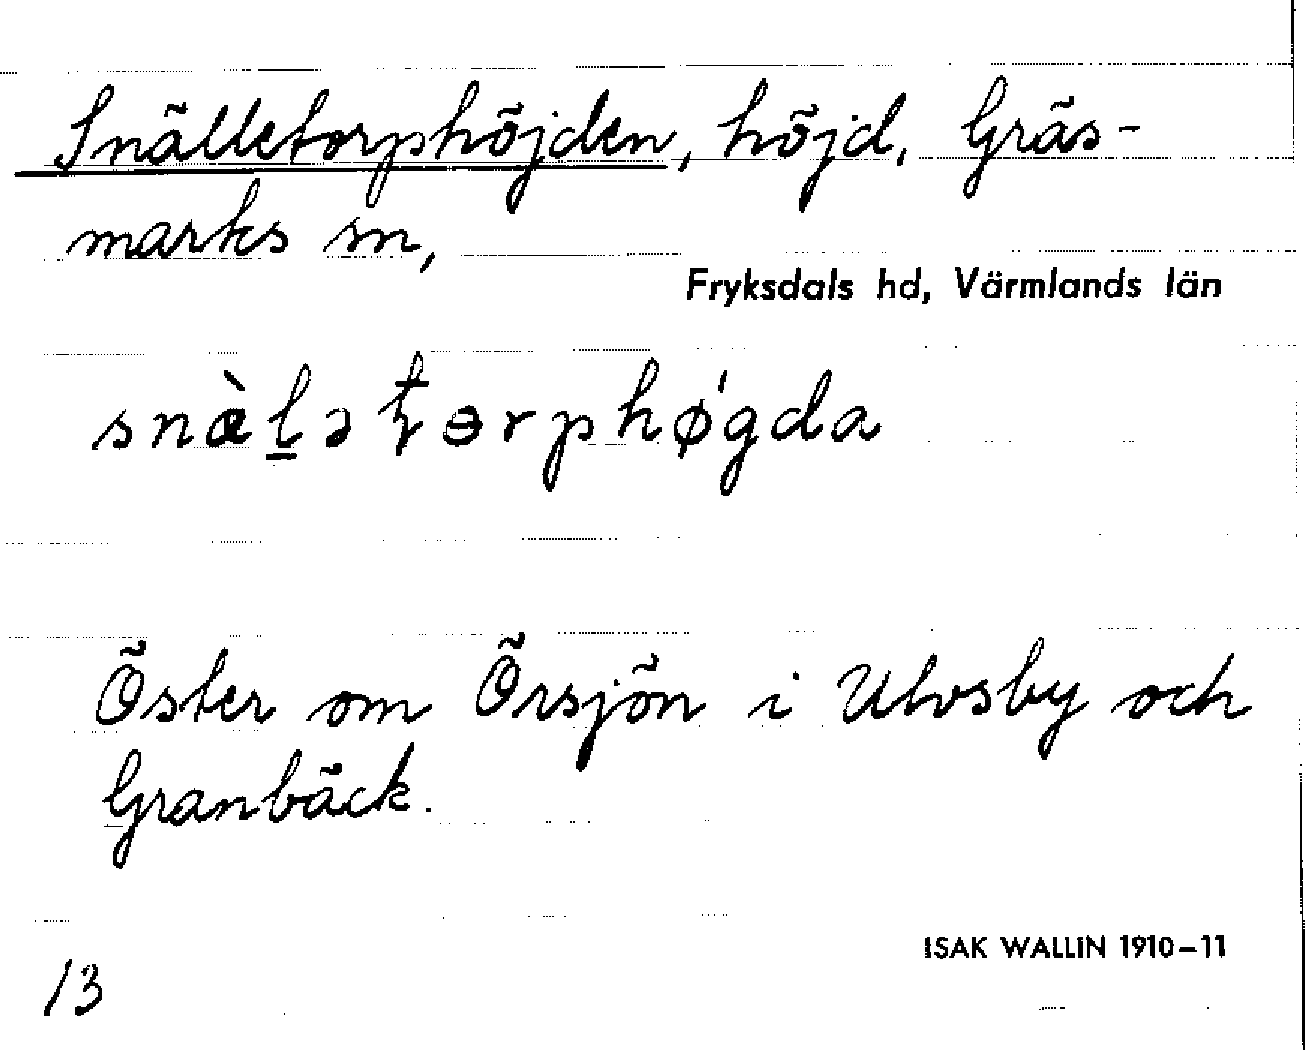 Snälletorphöjden, höjd, Gräs-
marks sn,
Fryksdals hd, Värmlands län
snæ̀l̠ətɵrphǿgda
Öster om Örsjön i Ulvsby och
Granbäck.
ISAK WALLIN 1910–11
13